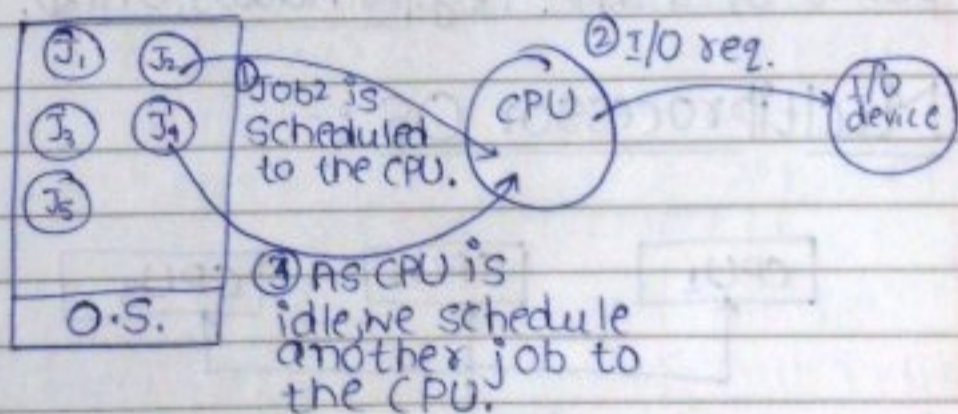 J1 J2
J3 J4
J5
O.S.
① Job2 is
scheduled
to the CPU.
CPU
② I/O req.
I/O
device
③ As CPU is
idle, we schedule
another job to
the CPU.